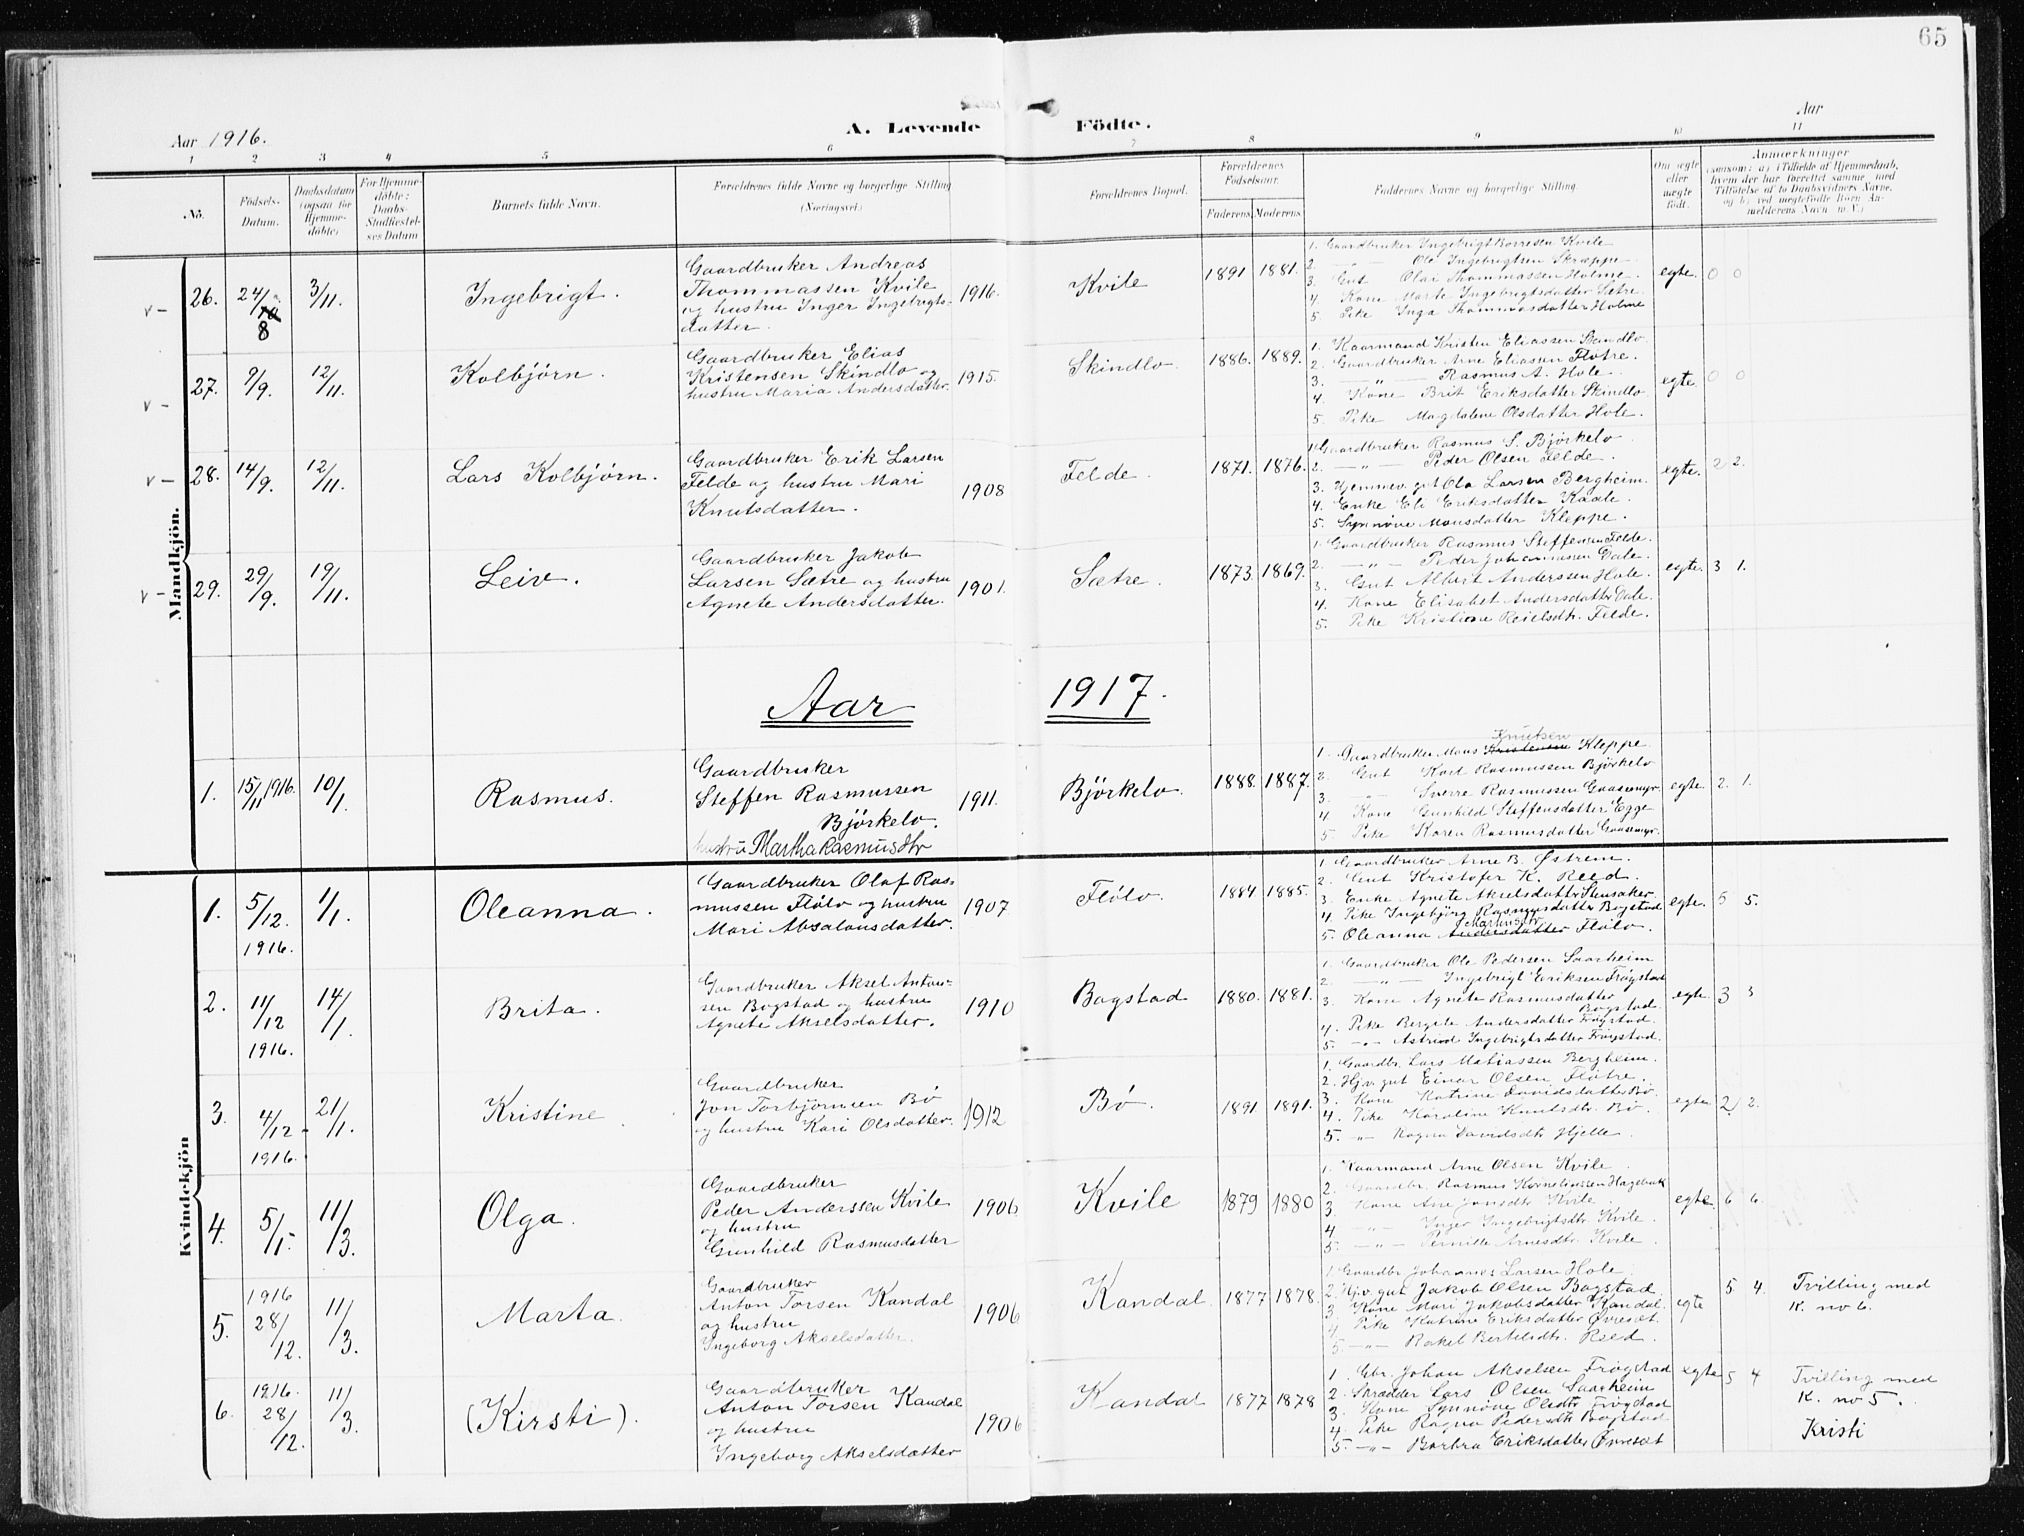 65
Aar 1916.
A. Levende
Födte.
Aar
1 2 3 4 5 6 7 8 9 10 11
No.
Födsels-
Datum.
Daabsdatum
(ogsaa for
Hjemme-
döbte)
For Hjemme-
döbte:
Daabs-
Stadfæstel-
ses Datum
Barnets fulde Navn.
Forældrenes fulde Navne og borgerlige Stilling
(Næringsvei.)
Forældrenes Bopæl.
Forældrenes
Födselsaar.
Faderens.
Moderens.
Faddernes Navne og borgerlige Stilling.
Om ægte
eller
uægte
født.
Anmærkninger
(saasom: a) i Tilfælde af Hjemmedaab,
hvem der har forrettet samme med
Tilføielse af to Daabsvidners Navne,
og b) ved uægtefødte Børn An-
melderens Navn m. V.)
Mandkjön.
26. 24/10 8
3/11.
Ingebrigt.
Gaardbruker Andreas
Thommassen Kvile
og hustru Inger Ingebrigts-
datter.
1916.
Kvile
1891 1881.
1. Gaardbruker Ingebrigt Borresen Kvile
2. —"— Ole Ingebrigtsen Skreppe.
3. Gut Olai Thommassen Holme.
4. Kone Marte Ingebrigtsdatter Sætre.
5. Pike Inga Thommasdatter Holme
egte. 0 0
27. 9/9.
12/11.
Kolbjörn.
Gaardbruker Elias
Kristensen Skindlo og
hustru Maria Andersdatter.
1915.
Skindlo.
1886. 1889.
1. Kaarmand Kristen Eliassen Skindlo
2. Gaardbruker Arne Eliassen Flötre.
3. —"— Rasmus A. Hole.
4. Kone Brit Eriksdatter Skindlo
5. Pike Magdalene Olsdatter Hole.
egte. 0 0
28. 14/9.
12/11.
Lars Kolbjørn.
Gaardbruker Erik Larsen
Felde og hustru Mari
Knutsdatter.
1908
Felde.
1871. 1876.
1. Gaardbruker Rasmus S. Björkelo.
2. —"— Peder Olsen Felde.
3. Hjemmev. gut Ola Larsen Bergheim.
4. Enke Eli Eriksdatter Kaale.
5. Synnöve Monsdatter Kleppe.
egte. 2 2.
29. 29/9.
19/11.
Leiv.
Gaardbruker Jakob
Larsen Sætre og hustru
Agnete Andersdatter.
1901.
Sætre.
1873. 1869.
1. Gaardbruker Rasmus Steffensen Felde.
2. —"— Peder Johannessen Dale.
3. Gut Albert Anderssen Hole.
4. Kone Elisabet Andersdatter Dale.
5. Pike Kristione Reielsdtr. Felde.
egte. 3 1.
Aar 1917.
1. 15/11 1916.
10/1.
Rasmus.
Gaardbruker
Steffen Rasmussen
Björkelo.
hustru Martha Rasmusdtr
1911.
Björkelo.
1888. 1887.
Knutsen
1. Gaardbruker Mons Kristensen Kleppe
2. Gut Karl Rasmussen Björkelo
3. —"— Sverre Rasmussen Gaasemyr.
4. Kone Gunhild Steffensdatter Egge
5. Pike Karen Rasmusdatter Gaasemyr.
egte. 2. 1.
Kvindekjön
1. 5/12. 1916.
1/1.
Oleanna.
Gaardbruker Olaf Ras-
mussen Flölo og hustru
Mari Absalonsdatter.
1907.
Flölo.
1884 1885.
1. Gaardbruker Arne B. Østrem.
2. Gut Kristofer K. Reed.
3. Enke Agnete Akselsdatter Stensaker
4. Pike Ingebjörg Rasmusdatter Bogstad
Markusdtr
5. Oleanna Andersdatter Flölo.
egte. 5 5.
2. 11/12 1916.
14/1.
Brita.
Gaardbruker Aksel Anton-
sen Bogstad og hustru
Agnete Akselsdatter.
1910
Bogstad
1880. 1881.
1. Gaardbruker Ole Pedersen Saarheim
2. —"— Ingebrigt Eriksen Frögstad
3. Kone Agnete Rasmusdatter
Bogstad.
4. Pike Bergete Andersdatter Frögstad.
5. —"— Astrid Ingebrigtsdatter Frögstad.
egte. 3 3
3. 4/12 1916.
21/1.
Kristine
Gaardbruker
Jon Torbjörnsen Bö
og hustru Kari Olsdatter.
1912
Bö.
1891 1891.
1. Gaardbr. Lars Matiassen Bergheim.
2. Hjv. gut Einar Olsen Flötre.
3. Kone Katrine Davidsdatter Bö.
4. Pike Karoline Knutsdtr. Bö.
5. —"— Ragna Davidsdtr Hjelle.
egte. 2 2.
4. 5/1-
11/3.
Olga.
Gaardbruker
Peder Anderssen Kvile
og hustru
Gunhild Rasmusdatter
1906.
Kvile
1879 1880
1. Kaarmand Arne Olsen Kvile.
2. Gaardbr. Rasmus Korneliussen Hagebak
3. Kone Ane Jonsdtr Kvile
4 —"— Inger Ingebrigtsdtr. Kvile.
5. —"— Pernille Arnesdtr. Kvile.
egte. 6 6.
5. 1916 28/12.
11/3.
Marta.
Gaardbruker
Anton Torsen Kandal
og hustru
Ingeborg Akselsdatter.
1906
Kandal.
1877 1878.
1. Gaardbr Johannes Larsen Hole.
2. Hjv. gut Jakob Olsen Bogstad
3. Kone Mari Jakobsdatter Kandal.
4. Pike Katrine Eriksdatter Övreset.
5. —"— Rakel Bertelsdtr. Reed.
egte
5. 4.
Tvilling med
K. no 6.
6. 1916. 28/12.
11/3.
(Kirsti).
Gaardbruker
Anton Torsen Kandal
og hustru
Ingeborg Akselsdatter
1906
Kandal
1877 1878
1. Gbr Johan Akselsen Frögstad
2. Skrædder Lars Olsen Saarheim
3. Kone Synnöve Olsdtr Frögstad
4. Pike Ragna Pedersdtr Bogstad
5. —"— Barbra Eriksdatter Övreset
egte 5 4
Tvilling med
K. no 5.
Kristi